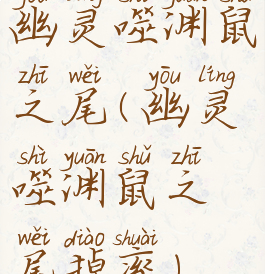 幽灵噬渊鼠
zhī wěi yōu líng
之尾(幽灵
shì yuān shǔ zhī
噬渊鼠之
wěi diào shuài
尾掉率)